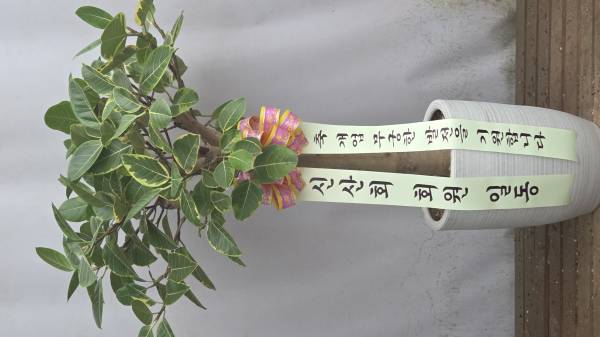 축 개업 무궁한 발전을 기원합니다
신사회 회원 일동